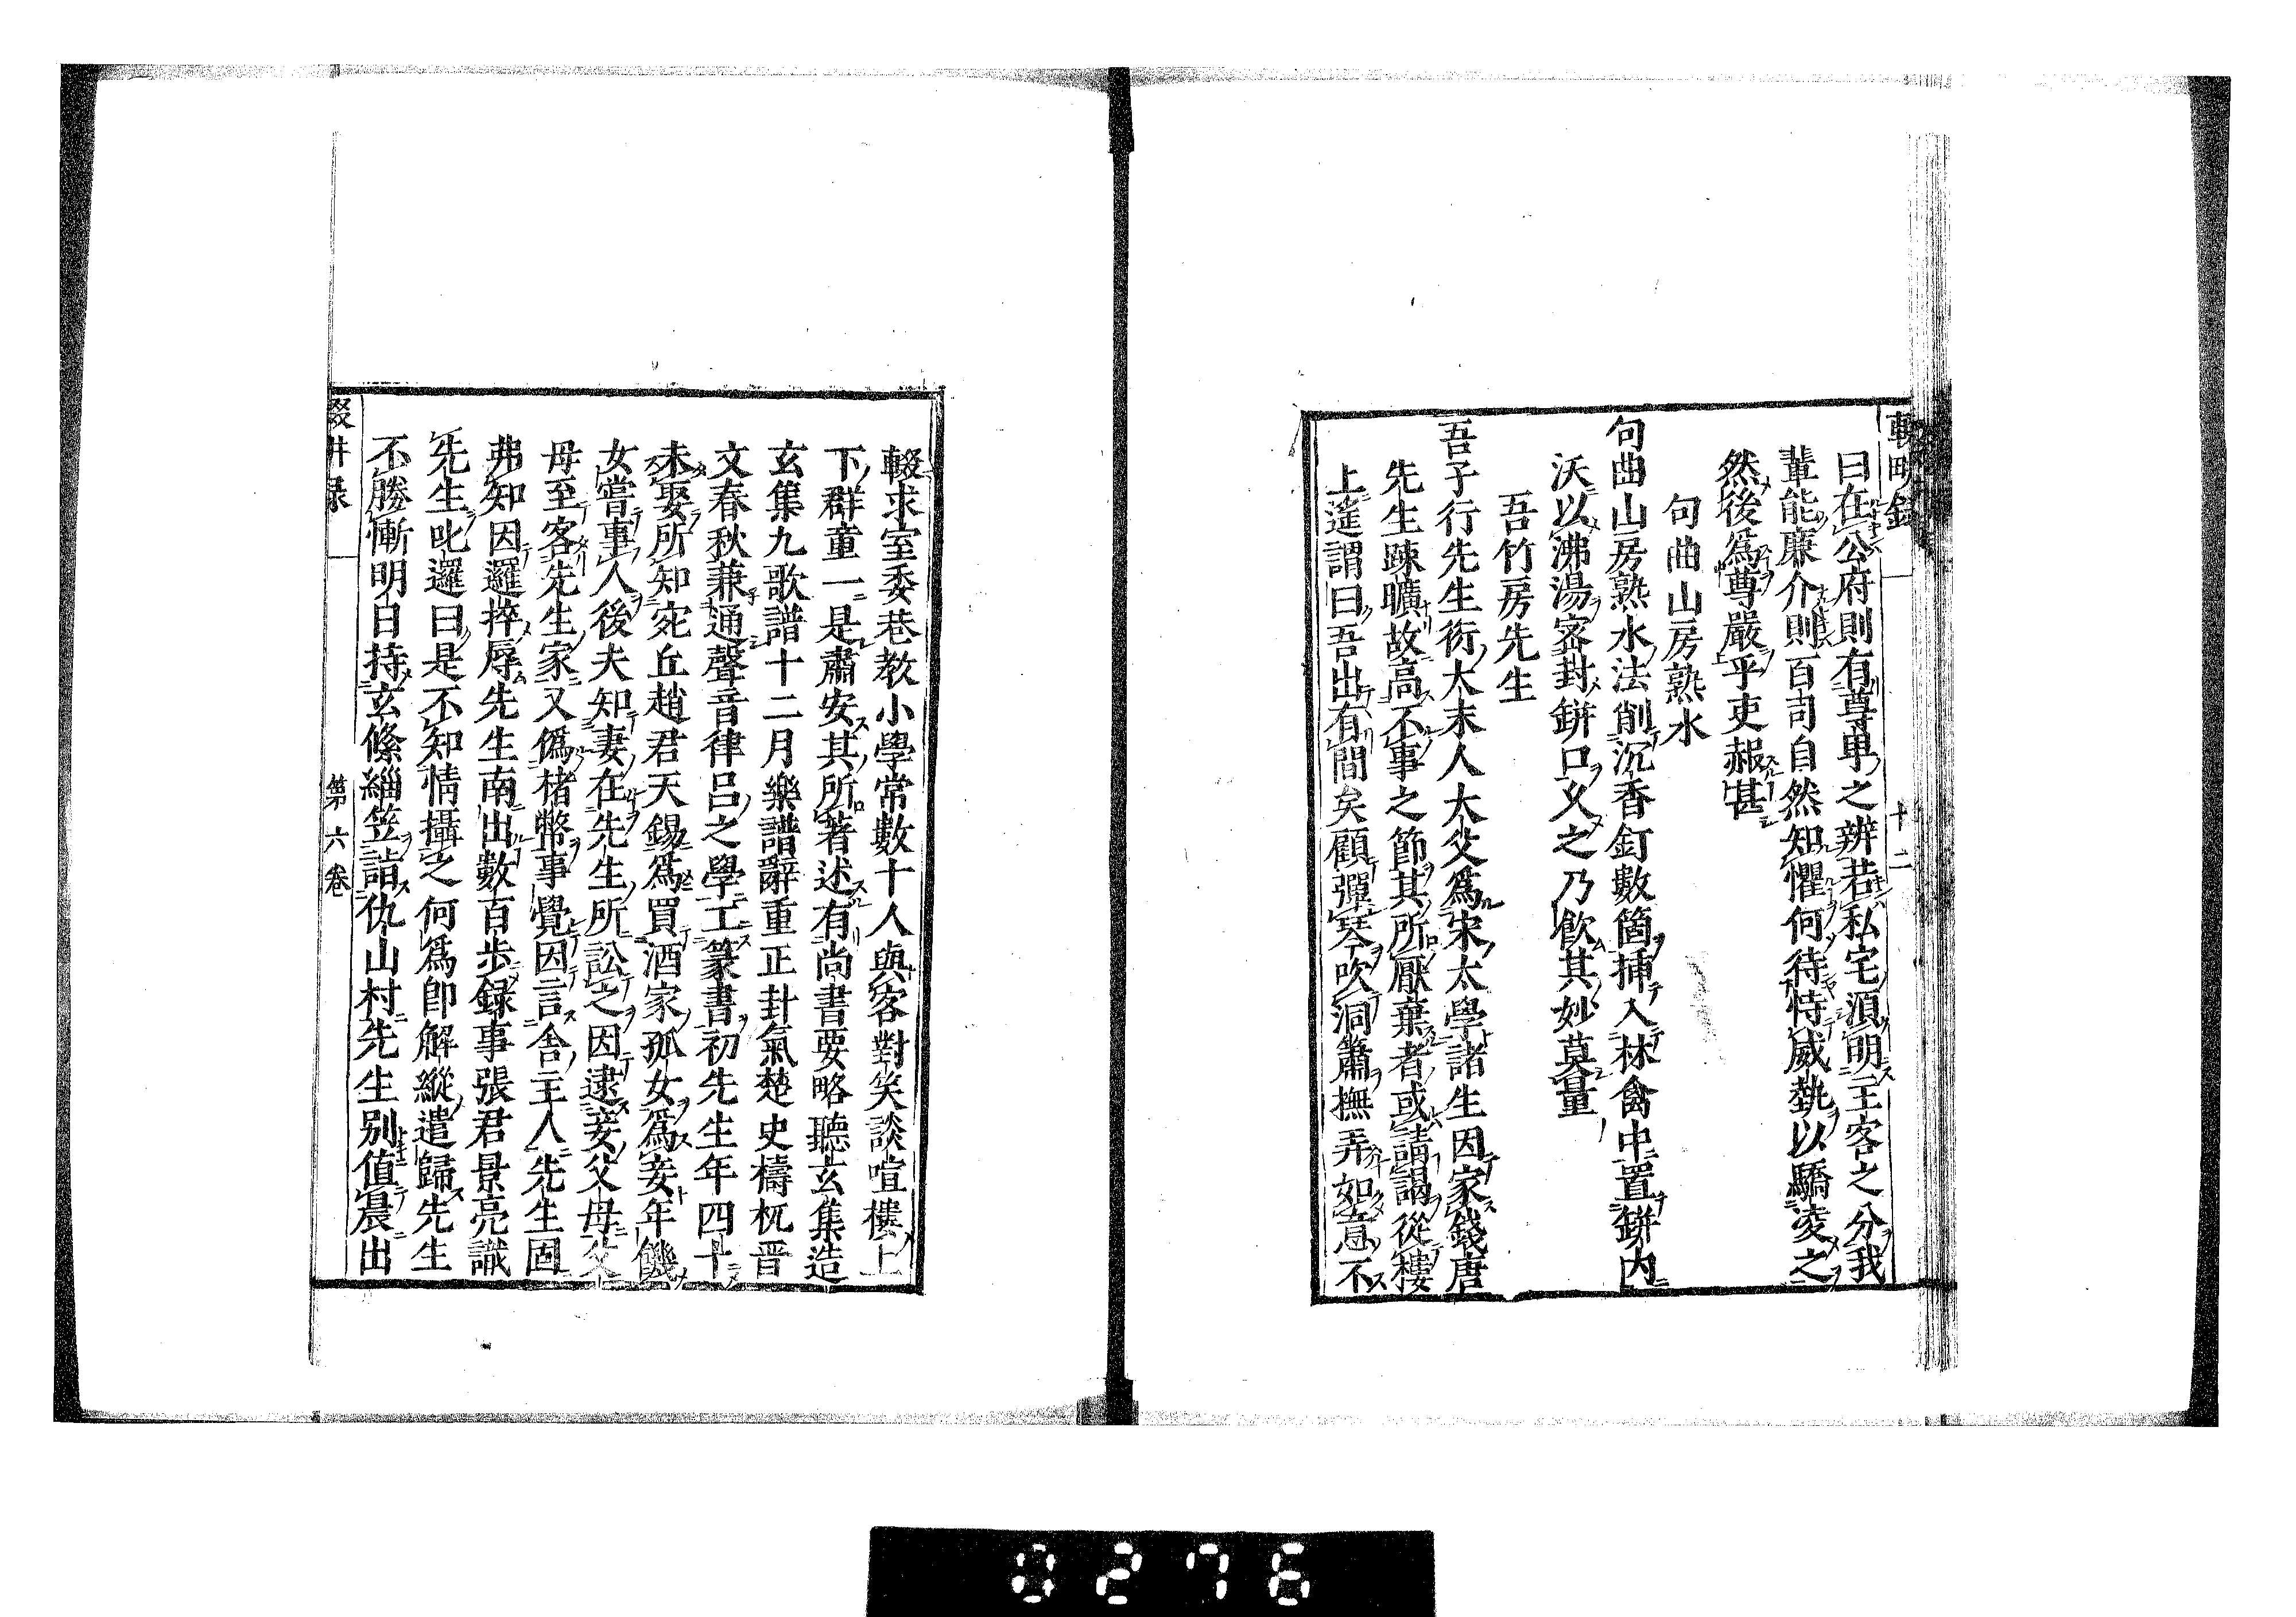 輟畊錄
十二
曰在公府則有尊卑之辨若私宅須明主客之分我
輩能廉介則百司自然知懼何待恃威勢以驕凌之
然後爲尊嚴乎吏赧甚
句曲山房熟水
句曲山房熟水法削沉香釘數箇插入林禽中置缾內
沃以沸湯密封缾口久之乃飲其妙莫量
吾竹房先生
吾子行先生衍太末人大父爲宋太學諸生因家錢唐
先生踈曠故高不事之節其所厭棄者或請謁從樓
上遙謂曰吾出有間矣顧彈琴吹洞簫撫弄如意不
輟求室委巷教小學常數十人與客對笑談喧樓上
下群童一是肅安其所著述有尚書要略聽玄集造
玄集九歌譜十二月樂譜辭重正卦氣楚史檮杌晋
文春秋兼通聲音律呂之學工篆書初先生年四十
未娶所知宛丘趙君天錫爲買酒家孤女爲妾年饑
女嘗事人後夫知妻在先生所訟之因逮妾父母父
母至客先生家又僞楮幣事覺因言舍主人先生固
弗知因邏捽辱先生南出數百步録事張君景亮識
先生叱邏曰是不知情攝之何爲即解縱遣歸先生
不勝慚明日持玄絛緇笠詣仇山村先生別值晨出
輟畊录
第六卷
0276